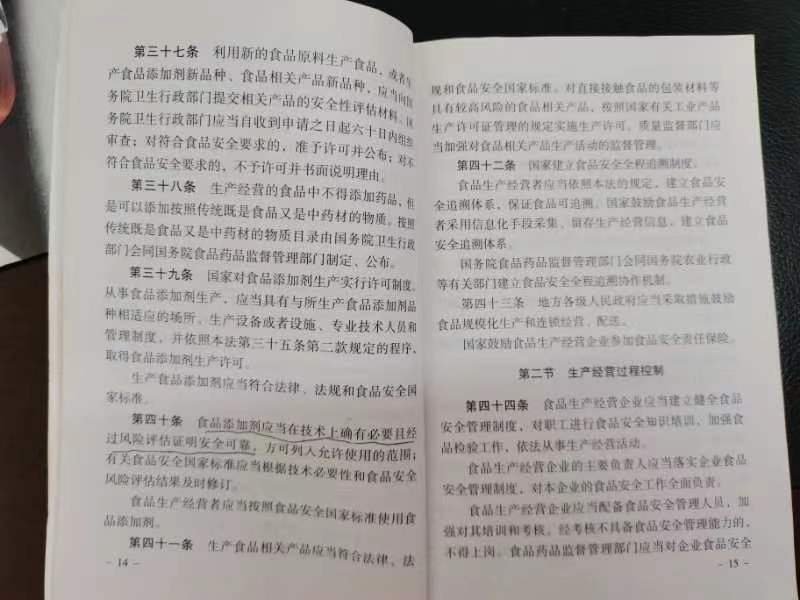 第三十七条 利用新的食品原料生产食品，或者生
产食品添加剂新品种、食品相关产品新品种，应当向国
务院卫生行政部门提交相关产品的安全性评估材料。国
务院卫生行政部门应当自收到申请之日起六十日内组织
审查；对符合食品安全要求的，准予许可并公布；对不
符合食品安全要求的，不予许可并书面说明理由。
第三十八条 生产经营的食品中不得添加药品，但
是可以添加按照传统既是食品又是中药材的物质。按照
传统既是食品又是中药材的物质目录由国务院卫生行政
部门会同国务院食品药品监督管理部门制定、公布。
第三十九条 国家对食品添加剂生产实行许可制度。
从事食品添加剂生产，应当具有与所生产食品添加剂品
种相适应的场所、生产设备或者设施、专业技术人员和
管理制度，并依照本法第三十五条第二款规定的程序，
取得食品添加剂生产许可。
生产食品添加剂应当符合法律、法规和食品安全国
家标准。
第四十条 食品添加剂应当在技术上确有必要且经
过风险评估证明安全可靠，方可列入允许使用的范围；
有关食品安全国家标准应当根据技术必要性和食品安全
风险评估结果及时修订。
食品生产经营者应当按照食品安全国家标准使用食
品添加剂。
第四十一条 生产食品相关产品应当符合法律、法
- 14 -
规和食品安全国家标准。对直接接触食品的包装材料等
具有较高风险的食品相关产品，按照国家有关工业产品
生产许可证管理的规定实施生产许可。质量监督部门应
当加强对食品相关产品生产活动的监督管理。
第四十二条 国家建立食品安全全程追溯制度。
食品生产经营者应当依照本法的规定，建立食品安
全追溯体系，保证食品可追溯。国家鼓励食品生产经营
者采用信息化手段采集、留存生产经营信息，建立食品
安全追溯体系。
国务院食品药品监督管理部门会同国务院农业行政
等有关部门建立食品安全全程追溯协作机制。
第四十三条 地方各级人民政府应当采取措施鼓励
食品规模化生产和连锁经营、配送。
国家鼓励食品生产经营企业参加食品安全责任保险。
第二节 生产经营过程控制
第四十四条 食品生产经营企业应当建立健全食品
安全管理制度，对职工进行食品安全知识培训，加强食
品检验工作，依法从事生产经营活动。
食品生产经营企业的主要负责人应当落实企业食品
安全管理制度，对本企业的食品安全工作全面负责。
食品生产经营企业应当配备食品安全管理人员，加
强对其培训和考核。经考核不具备食品安全管理能力的，
不得上岗。食品药品监督管理部门应当对企业食品安全
- 15 -